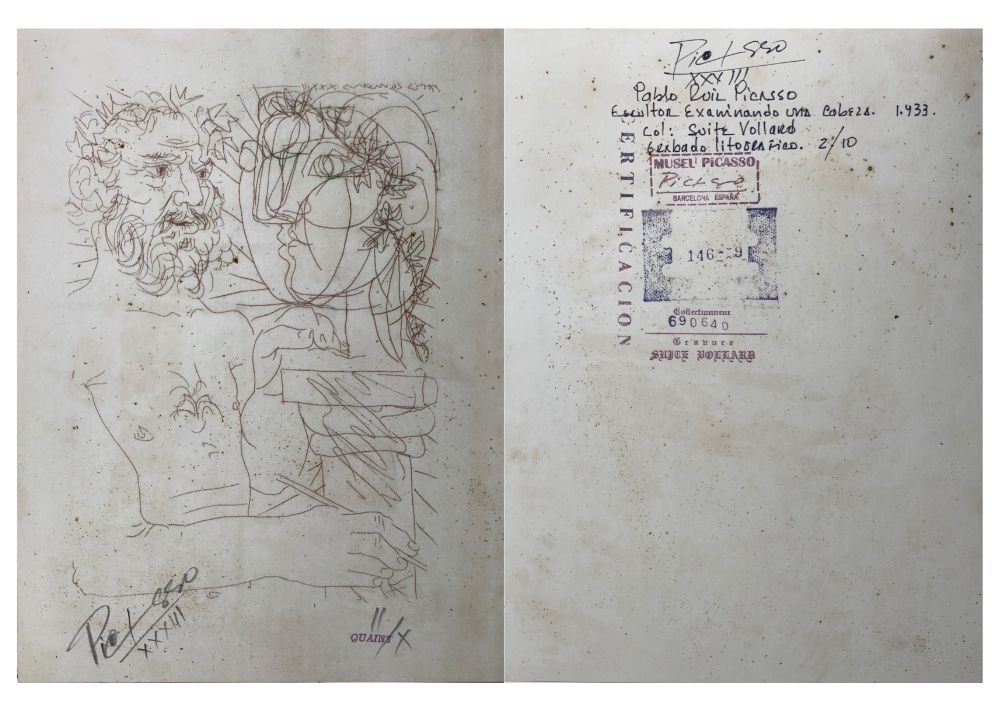 Picasso
XXXIII
QUAINT
II/X
Picasso
XXXIII
Pablo Ruiz Picasso
Escultor Examinando una cabeza. 1.933.
Col: Suite Vollard
Grabado litografico. 2/10
CERTIFICACION
MUSEU PICASSO
Picasso
BARCELONA ESPAÑA
146--9
Collectionneur
690640
Gravure
SUITE VOLLARD